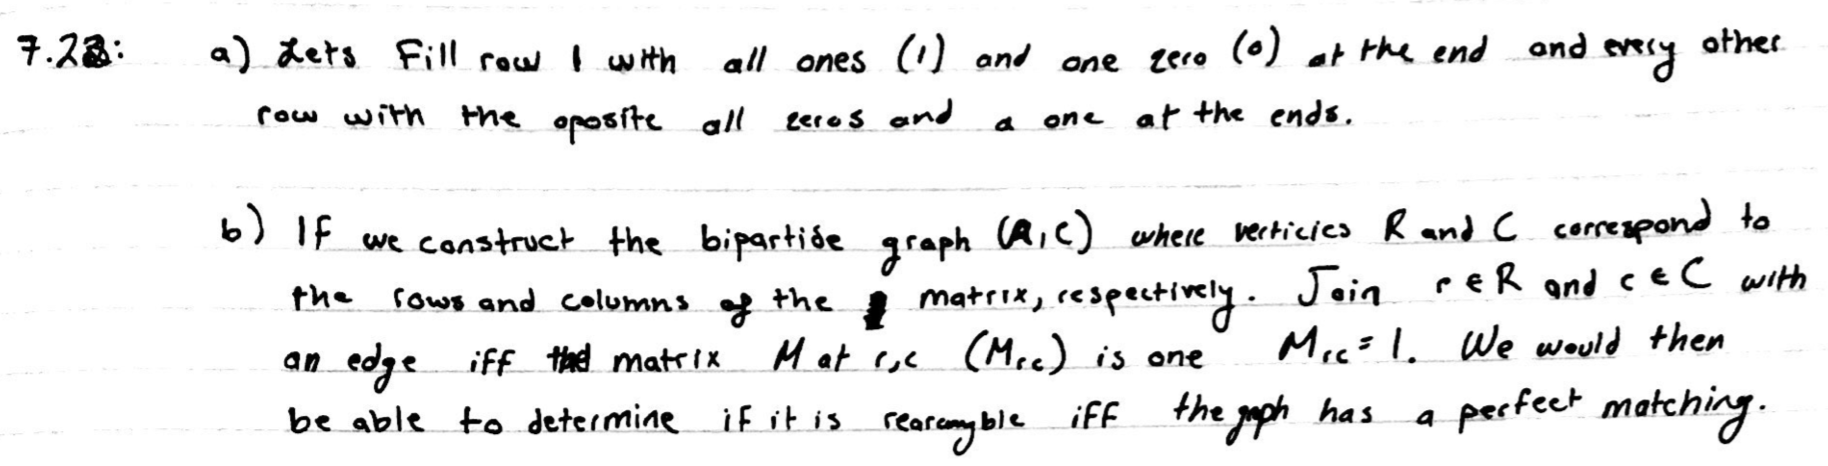 7.23: a) Lets Fill row 1 with all ones (1) and one zero (0) at the end and every other
row with the oposite all zeros and a one at the ends.
b) If we construct the bipartide graph (R,C) where verticies R and C correspond to
the rows and columns of the matrix, respectively. Join r ∈ R and c ∈ C with
an edge iff the matrix M at r,c (Mrc) is one Mrc = 1. We would then
be able to determine if it is rearangble iff the graph has a perfect matching.